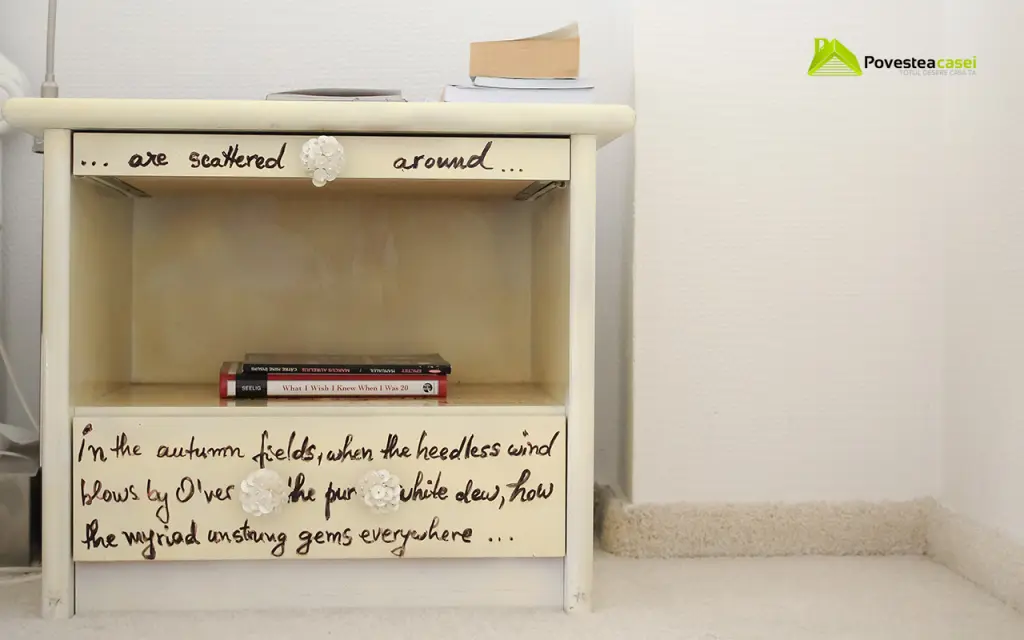 Povesteacasei
TOTUL DESPRE CASA TA
... are scattered around...
EPICTET MANUALUL MARCUS AURELIUS CĂTRE MINE ÎNSUMI
SEELIG What I Wish I Knew When I Was 20
In the autumn fields, when the heedless wind
blows by O'ver the pur white dew, how
the myriad unstrung gems everywhere ...